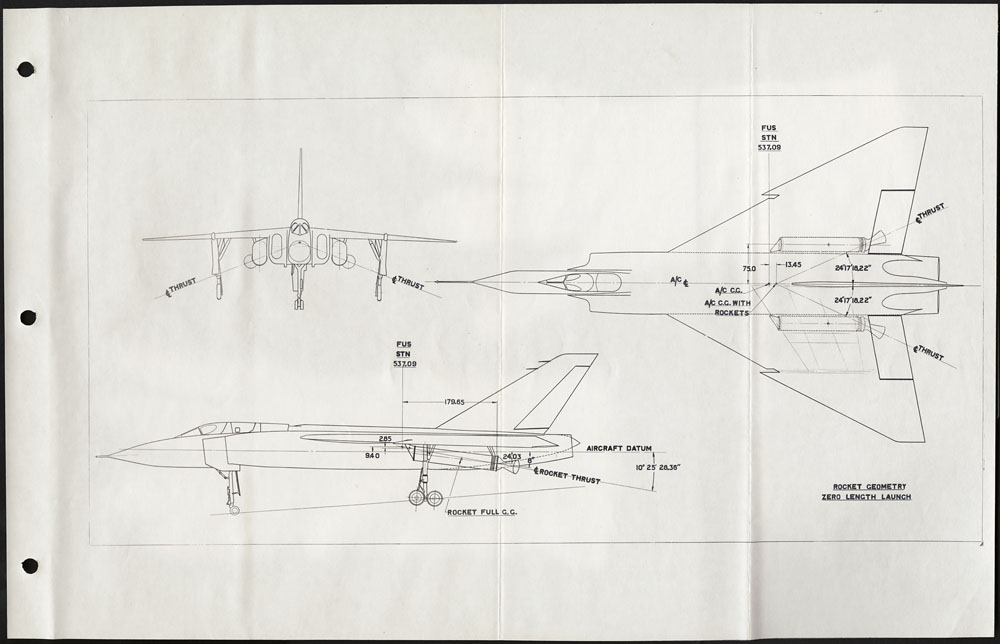 FUS
STN
537.09
℄ THRUST
℄ THRUST
℄ THRUST
75.0
13.45
24°17'18.22"
A/C ℄
A/C C.G.
A/C C.G. WITH
ROCKETS
24°17'18.22"
℄ THRUST
FUS
STN
537.09
179.65
2.85
9.40
24.03
8"
AIRCRAFT DATUM
10° 25' 28.36"
℄ ROCKET THRUST
ROCKET FULL C.G.
ROCKET GEOMETRY
ZERO LENGTH LAUNCH